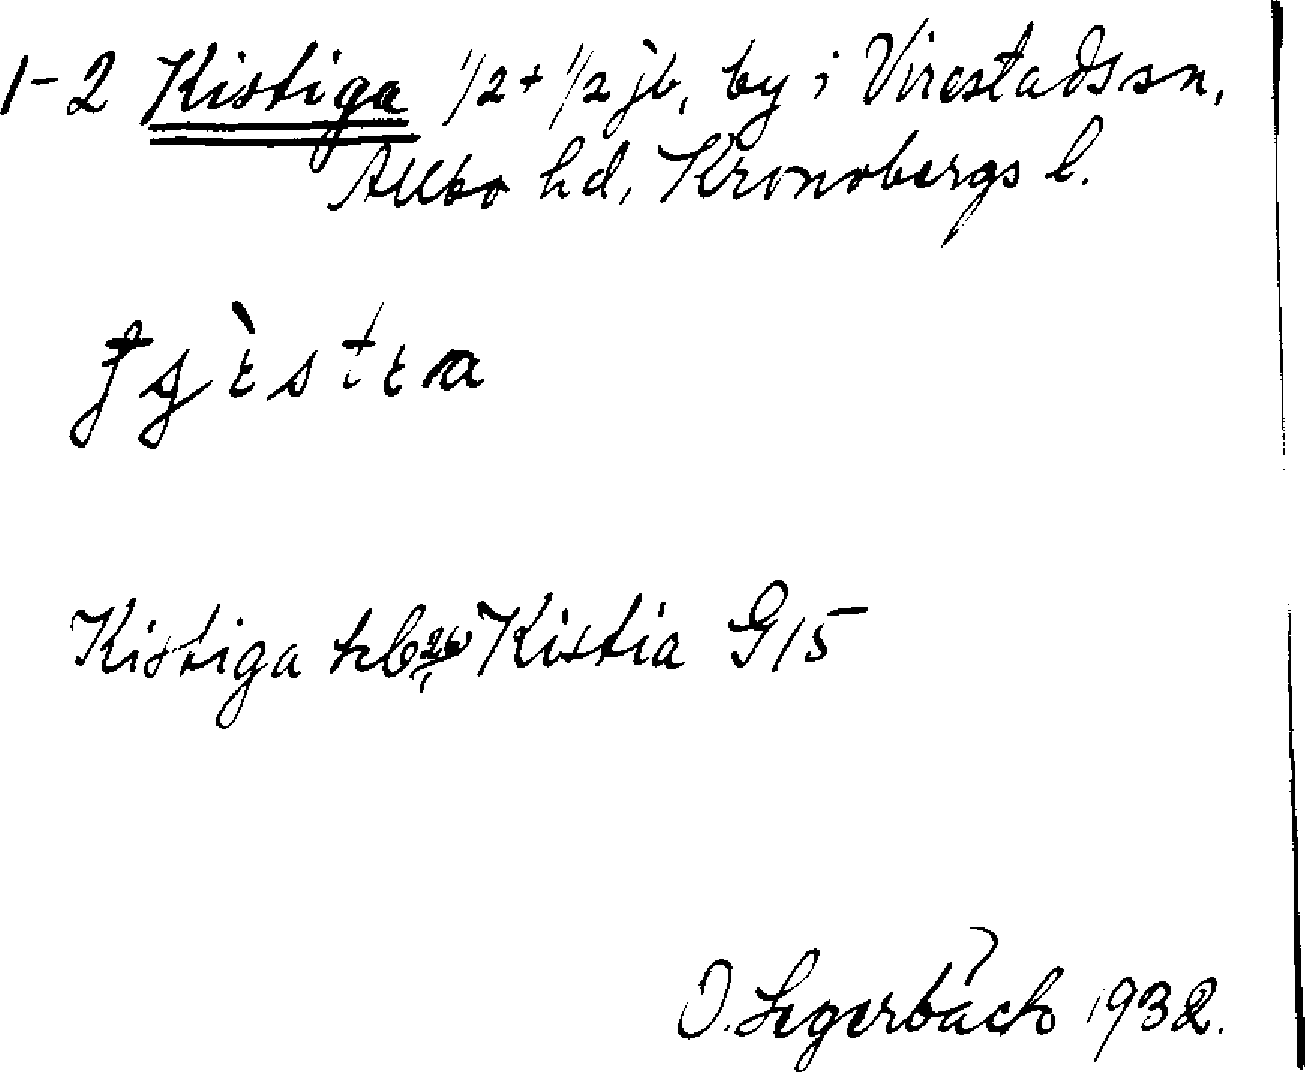 1-2 Kistiga 1/2 + 1/2 jb, by i Virestads sn,
Allbo hd, Kronobergs l.
Kistiga Kistia G15
O. Segerbäck 1932.